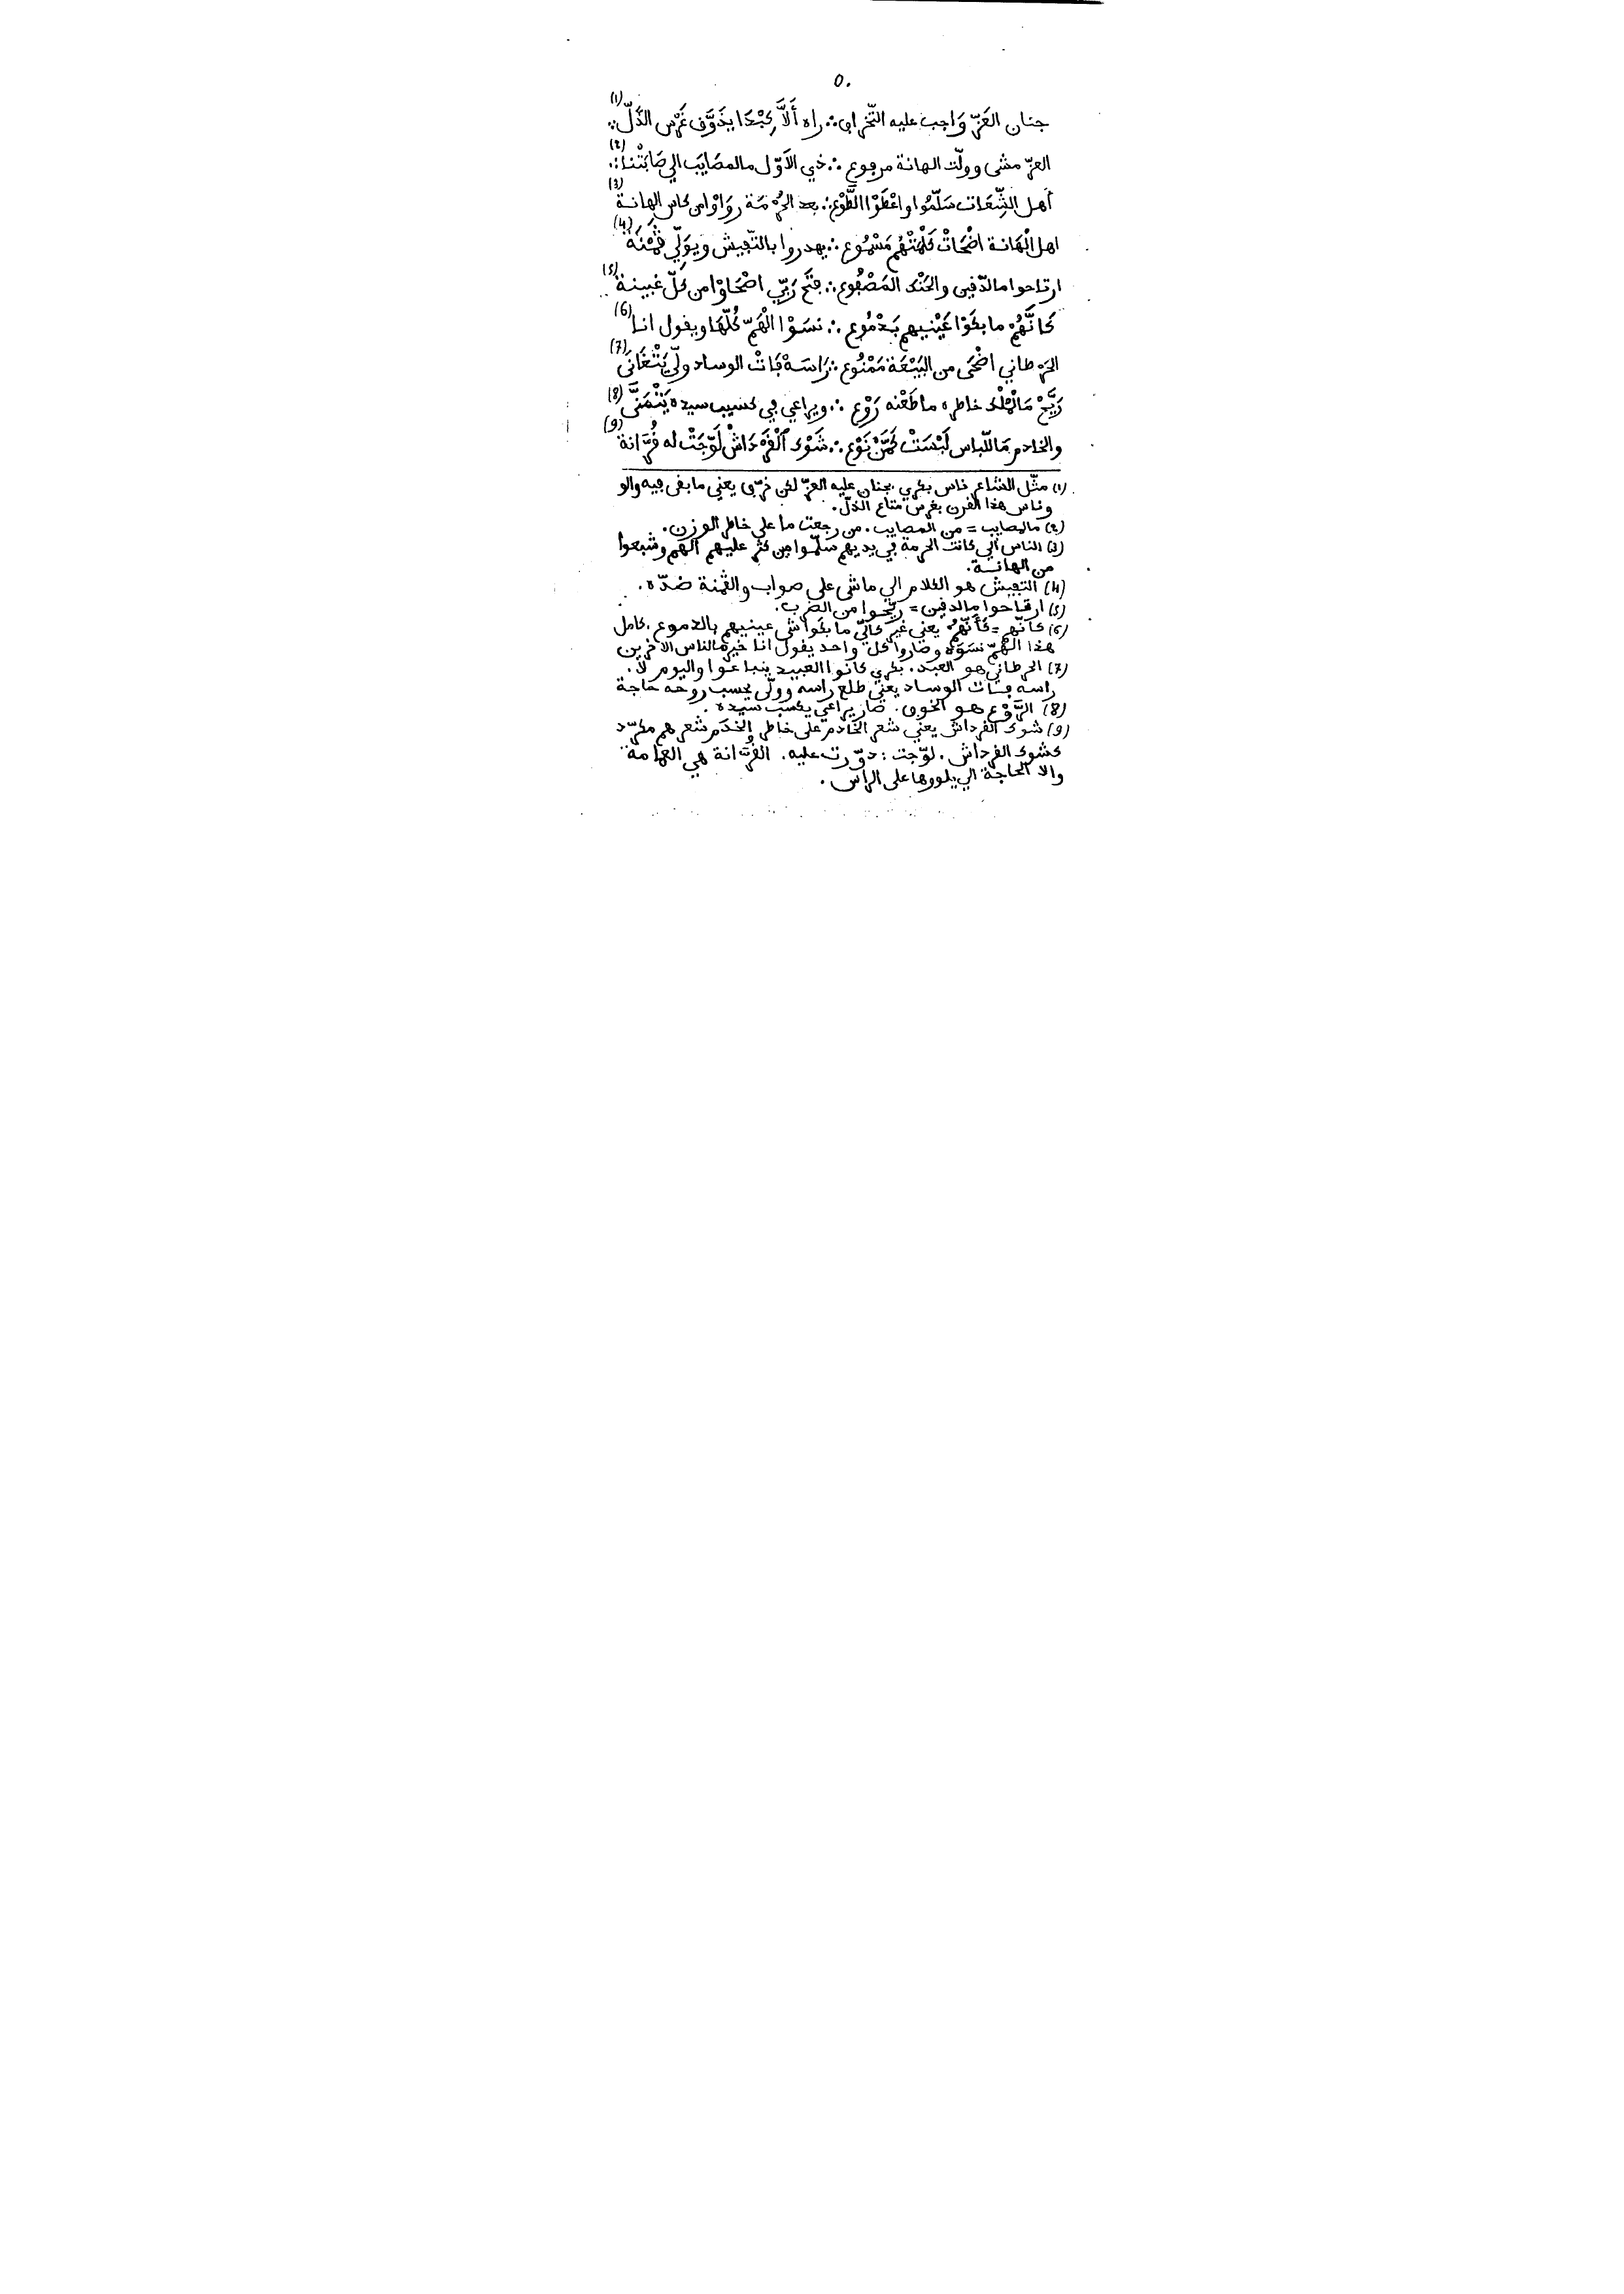 ٥٠
جنان العَزّ وَاجب عليه التّخراب ∴ راه أَلاَّ كِبْدَا يذَوَّق غَرْس الذَّلّ (1)
العزّ مشى وولّت الهانة مرجوع ∴ ذي الأوّل مالمصَايَب الي صَابَتْنا (2)
أهل الشِّيعَات سَلّمُوا واعْطَوْا الطَّوْع ∴ بعد الحُرْمَة رْوَاوْا من كاس الهانة (3)
اهل الْهَانة اضْحَاتْ كَلْمَتْهُم مَسْمُوع ∴ يهدروا بالتّفييش ويوَلّي ڤَمْنَة (4)
ارتاحوا مالدّفين والحَنْك المَصْفُوع ∴ فتَح رَبّي اضْحَاوْا من كَلّ غبينة (5)
كَانَّهُم ما بكَوْا عَيْنيهم بَدْمُوع ∴ نسَوْا الْهَمّ كُلّهَا ويقول انا (6)
الحَرطاني اضْحَى من البَيْعَة مَمْنُوع ∴ رَاسَهْ فَاتْ الوساد ولّي يَتْغَانَى (7)
رَيَّحْ مَالْمْلْك خاطره ما طَعْنه رَوْع ∴ ويراعي في كسيب سيده يَتْمَنَّى (8)
والخادم مَاللّباس لَبْسَتْ كَمَّنْ نَوْع ∴ شَوْك ٱلْقَرْدَاشْ لَوّجَتْ له فُرَّانة (9)
(1) مثّل الشاعر ناس بكري بجنان عليه العزّ لكن خربّ يعني ما بقى فيه والو
وناس هذا القرن بغرس متاع الذلّ.
(2) مالمصايب = من المصايب. من رجعت ما على خاطر الوزن.
(3) الناس الي كانت الحرمة في يديهم سَلّموا من كثر عليهم الهم وشبعوا
من الهانة.
(4) التفييش هو الكلام الي ماشي على صواب والڤمنة ضدّه.
(5) ارتاحوا مالدفين = ريّحوا من الضرب.
(6) كانّهم = كَأنّهم يعني غير كالّي ما بكَواش عينيهم بالدموع، كامل
هذا الهمّ نسَوْه وصاروا كل واحد يقول انا خير مالناس الاخرين
(7) الحرطاني هو العبد. بكري كانوا العبيد ينباعوا واليوم لا.
راسه فات الوساد يعني طلع راسه وولّى يحسب روحه حاجة
(8) الرَّوْع هو الخوف. صار يراعي يكسب سيده.
(9) شوك القرداش يعني شعر الخادم على خاطر الخدَم شعرهم مكرّد
كشوك القرداش. لوّجت: دوّرت عليه. الفرّانة هي العمامة
والا الحاجة الي يلوروها على الراس.